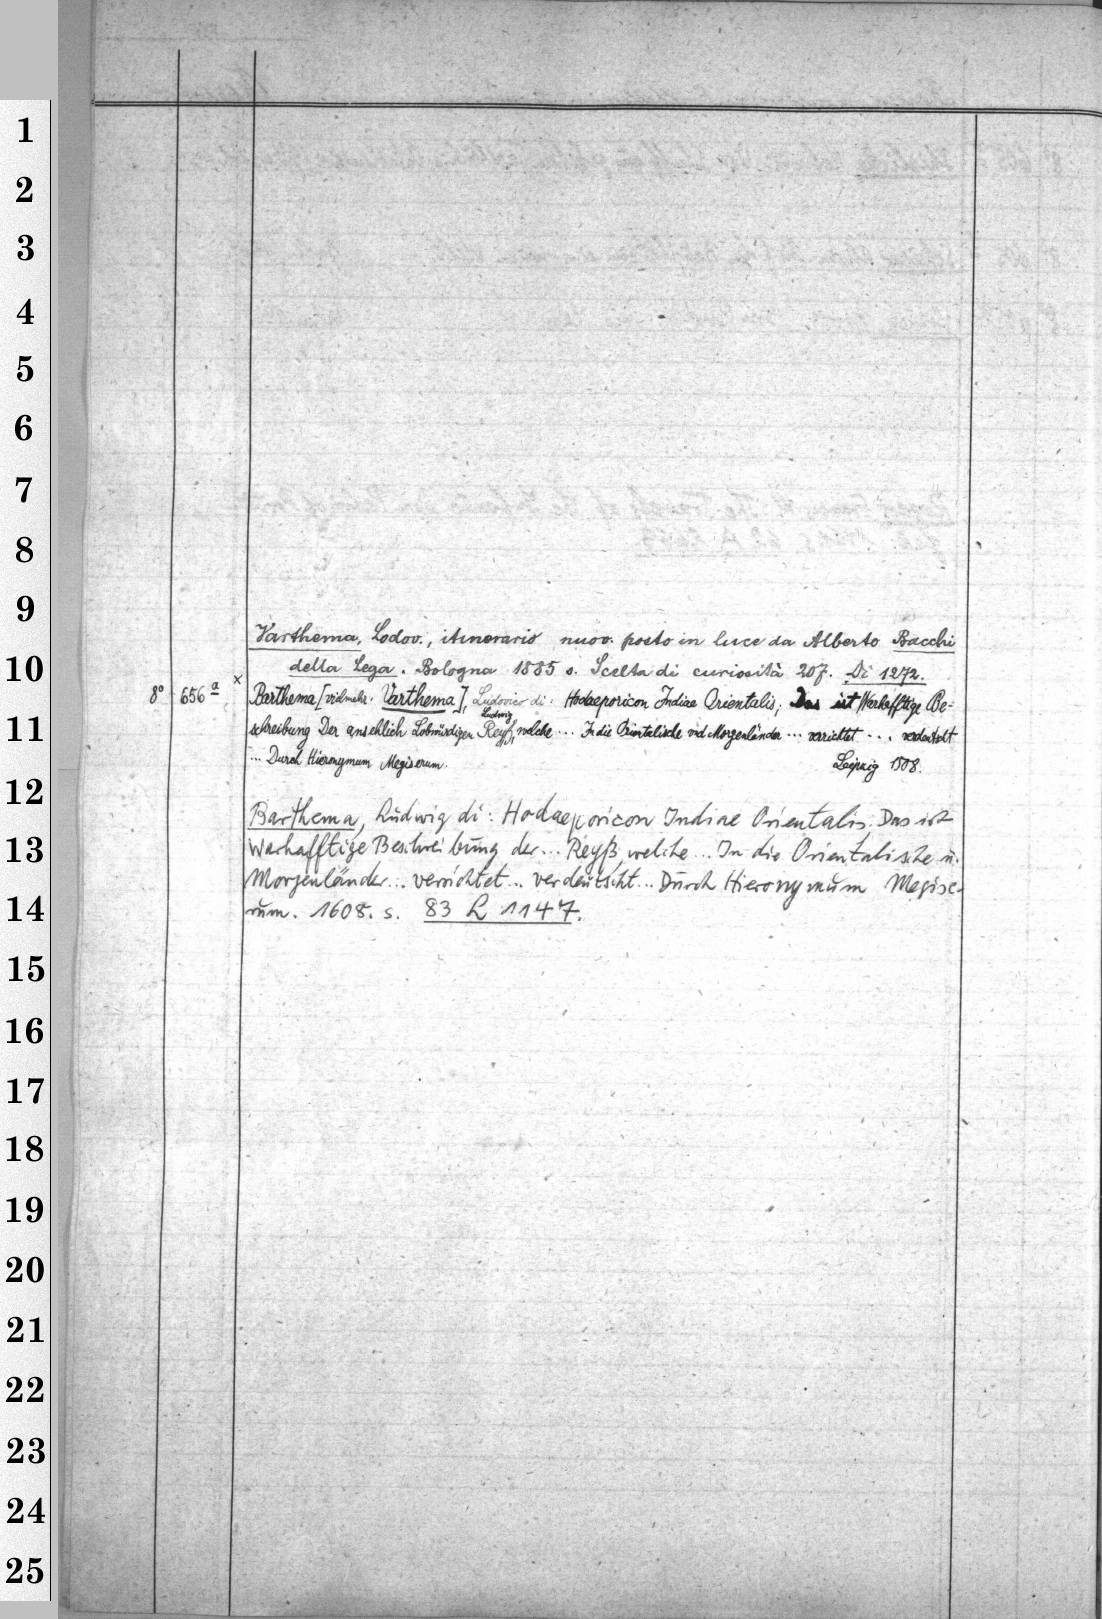 1
2
3
4
5
6
7
8
9
Varthema, Lodov., itinerario nuov. posto in luce da Alberto Bacchi
10
della Lega. Bologna 1885 s. Scelta di curiosità 207. Di 1272.
8° 656 a × Barthema [vielmehr Varthema], Ludovico di: Hodaeporicon Indiae Orientalis; Das ist Warhafftige Be-
Ludwig
11
schreibung Der ansehlich Lobwürdigen Reyß, welche ... In die Orientalische vnd Morgenländer ... verrichtet ... verdeutscht
... Durch Hieronymum Megiserum. Leipzig 1508.
12
Barthema, Ludwig di: Hodaeporicon Indiae Orientalis; Das ist
13
Warhafftige Beschreibung der ... Reyß, welche ... In die Orientalische u.
Morgenländer ... verrichtet ... verdeutscht ... Durch Hieronymum Megise-
14
rum. 1608. s. 83 L 1147.
15
16
17
18
19
20
21
22
23
24
25